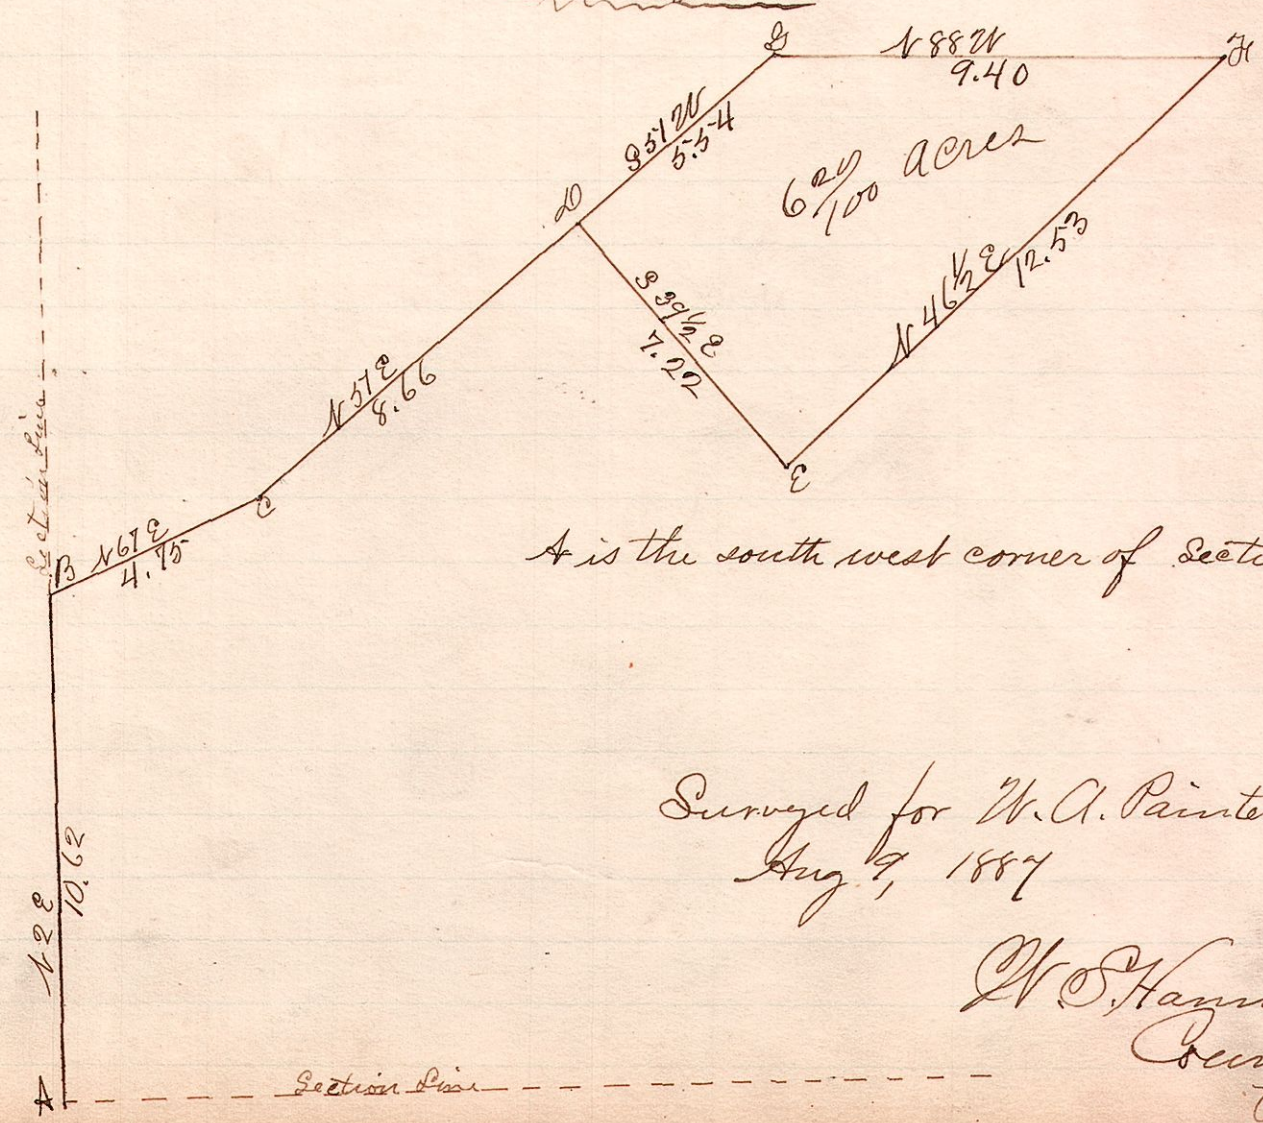 G
N 88 W
H
9.40
S 51 W
5.54
6 20/100 acres
D
S 39 1/2 E
7.22
N 46 1/2 E
12.53
E
N 51 E
8.66
C
Section Line
B
N 67 E
4.75
A is the south west corner of Secti
N 2 E
10.62
Surveyed for W. A. Painte
Aug 9, 1887
W. S. Hann
Coun
A
Section Line